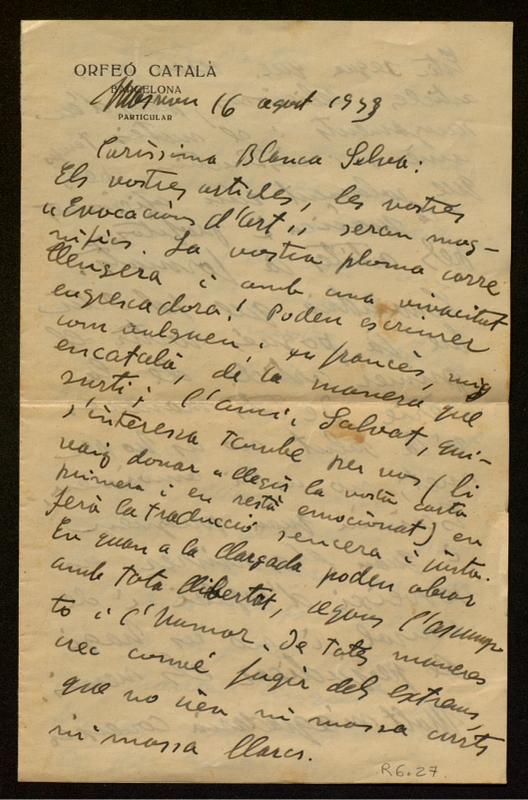 ORFEÓ CATALÀ
BARCELONA
PARTICULAR
16 agost 1933
Caríssima Blanca Selva:
Els vostres articles, les vostres
"Evocacions d'Art", seran mag-
nífics. La vostra ploma corre
lleugera i amb una vivacitat
engrescadora! Poden escriurer
com vulgueu, en francès, mig
en català, de la manera que
surti; l'amic Salvat, qui
s'interessa també per vos (li
vaig donar a llegir la vostra carta
primera i en restà emocionat) en
ferà la traducció sencera i justa.
En quan a la llargada poden obrar
amb tota llibertat, segons l'assump-
to i l'humor. De totes maneres
convé fugir dels extrems,
que no sien ni massa curts
ni massa llarcs.
R6.27.